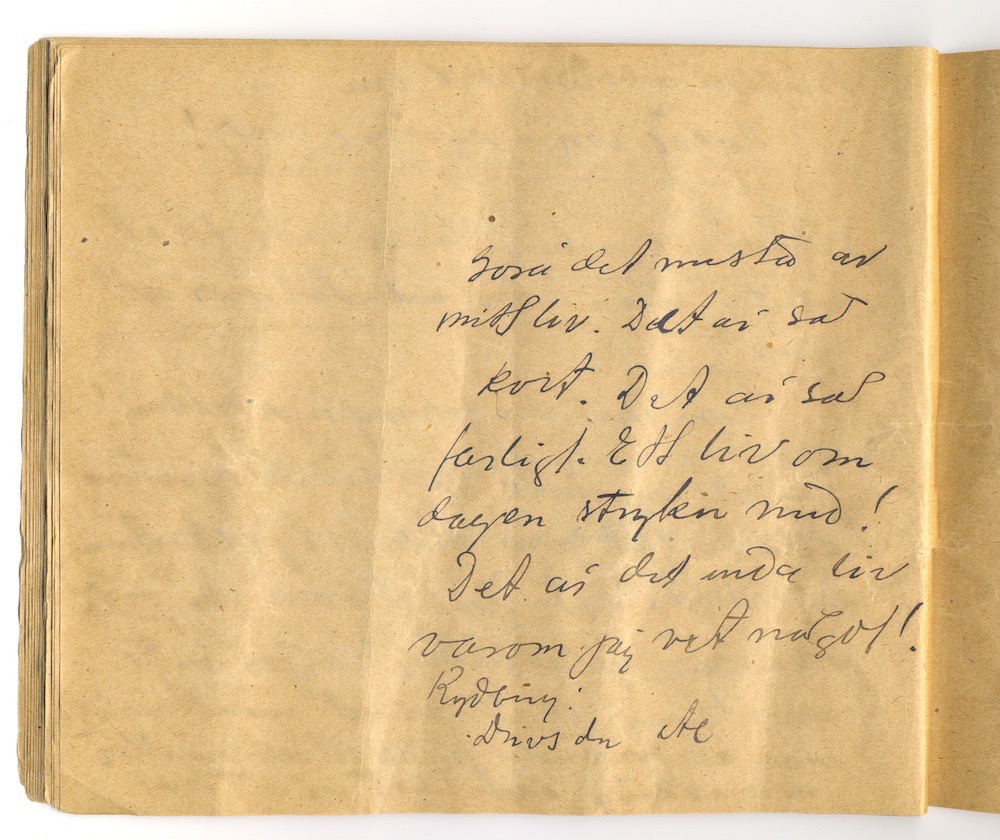 göra det mesta av
mitt liv. Det är så
kort. Det är så
farligt. Ett liv om
dagen stryker med!
Det är det enda liv
varom jag vet något!
Rydberg:
Drivs du etc